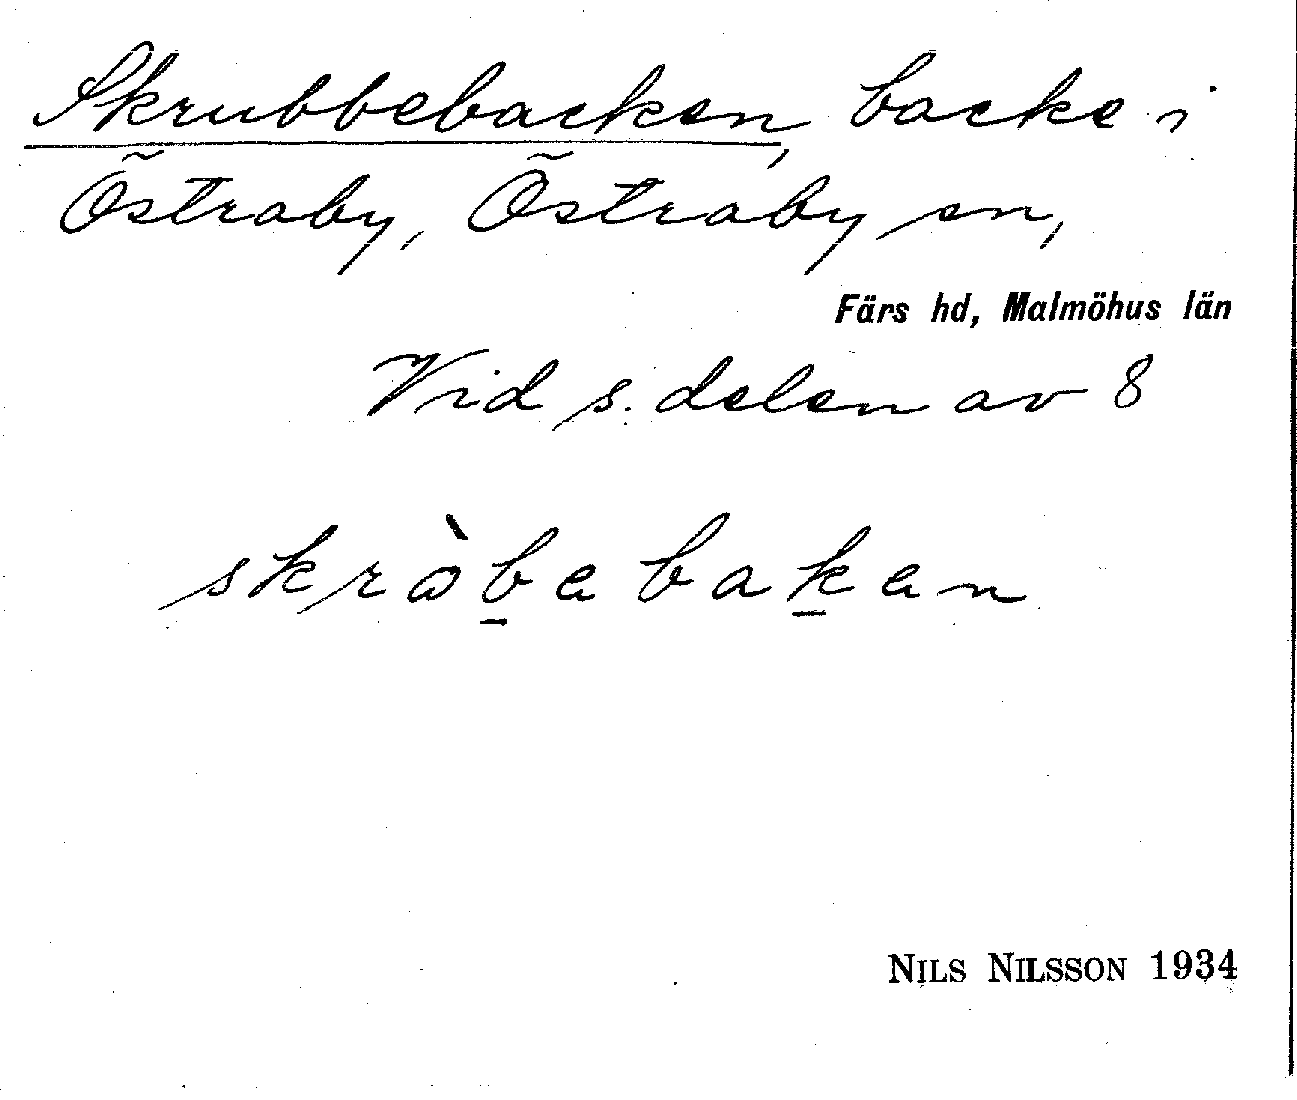 Skrubbebacken, backe i
Östraby, Östraby sn,
Färs hd, Malmöhus län
Vid s. delen av 8
skròbebaken
NILS NILSSON 1934